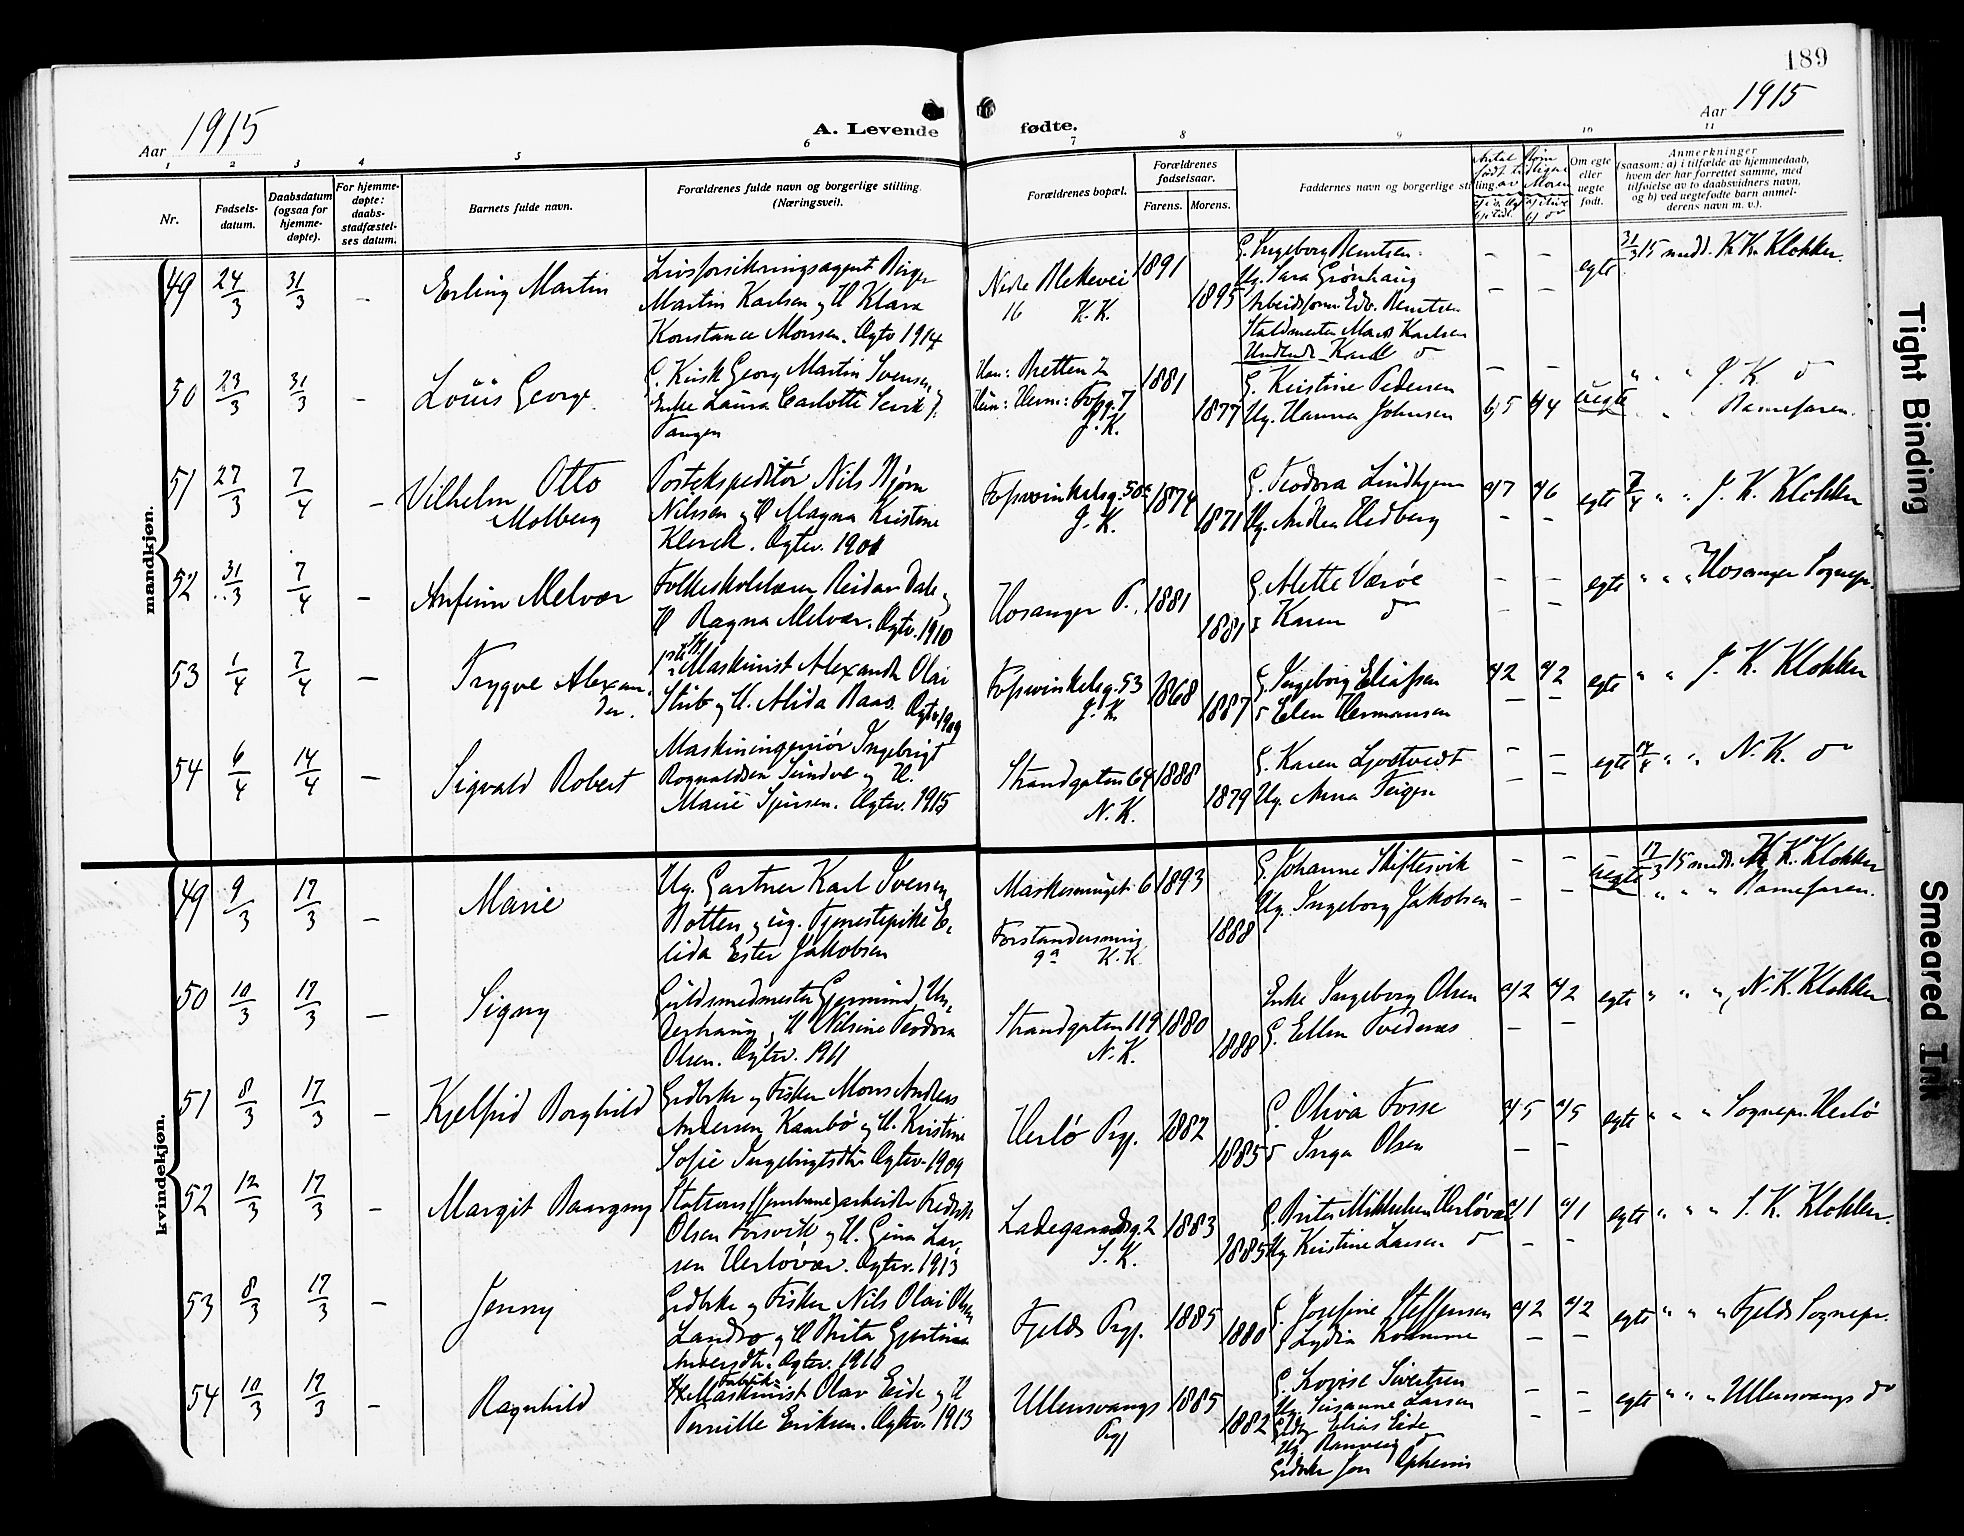 189
Aar 1915
A. Levende
fødte.
Aar 1915
1 2 3 4 5 6 7 8 9 10 11
Nr.
Fødsels-
datum.
Daabsdatum
(ogsaa for
hjemme-
døpte).
For hjemme-
døpte:
daabs-
stadfæstel-
ses datum.
Barnets fulde navn.
Forældrenes fulde navn og borgerlige stilling.
(Næringsvei).
Forældrenes bopæl.
Forældrenes
fødselsaar.
Farens. Morens.
Faddernes navn og borgerlige stilling.
Om egte
eller
uegte
født.
Anmerkninger
(saasom: a) i tilfælde av hjemmedaab,
hvem der har forrettet samme, med
tilføielse av to daabsvidners navn,
og b) ved uegtefødte barn anmel-
derens navn m. v.).
mandkjøn.
49 24/3 31/3 – Erling Martin
Livsforsikringsagent Birger
Martin Karlsen og H. Klara
Konstance Monsen. Egtv 1914
Nedre Blekevei
16 K.K.
1891
1895
G. Ingeborg Berntsen
Ug. Sara Grønhaug
Arbeidsform. Edv. Berntsen
Staldmester Mars Karlsen
Karl do
– –
– –
egte
31/3 15 medd. K.K. Klokker.
50 23/3 31/3 – Louis George
Georg Martin Svensen
Enke Laura Carlotte
Tangen
J.K.
1881
1877
G. Kristine Pedersen
Ug. Hanna Johnsen
– –
b/5 b/4
uegte
" " " J. K. do
" " Barnefaren.
51 27/3 7/4 – Vilhelm Otto
Molberg
Postekspeditør Nils Bjørn
Nilssen og H Magna Kristine
Klerck. Egtev. 1901
Fosswinkelsg. 50a
J. K.
1874
1871
G. Teodora Lindhjem
Ug. Andrea Hedberg
a/7 a/6
– –
egte
7/4 " " J. K. Klokker
52 31/3 7/4 – Anfinn Melvær
Folkeskolelærer Reidar Dale og
H Ragna Melvær. Egtv. 1910
Hosanger P.
1881
1881
G. Mette Værøe
Karen do
– –
– –
egte
" " " Hosanger Sognepr.
53 1/4 7/4 – Trygve Alexan-
der.
Maskinist Alexander Olai
Stub og H. Alida Raas. Egtv 1909
Fosswinkelsg. 53
J. K.
1868
1887
G. Ingeborg Eliassen
do Elen Hermansen
a/2 a/2
– –
egte
" " J. K. Klokker
54 6/4 14/4 – Sigvald Robert
Maskiningeniør Ingebrigt
Rognaldsen Sundve og H.
Marie Sjursen. Egtev. 1915
Strandgaten 64
N. K.
1888
1879
G. Karen Ljostvedt
Ug. Anna Teigen
– –
– –
egte
14/4 " " N. K. do
kvindekjøn.
49 9/3 17/3 – Marie
Ug. Gartner Karl Iversen
Botten og ug. Tjenestepike E-
lida Ester Jakobsen
Maskesmuget 6
Forstandersmug
9a K.K.
1893
1888
G. Johanne Skiftesvik
Ug. Ingeborg Jakobsen
– –
– –
uegte
17/3 15 medd. K.K. Klokker
" " " Barnefaren.
50 10/3 17/3 – Signy
Guldsmedmester Gjermund
og H Nilsine Teodora
Olsen. Egtev. 1911
Strandgaten 119
N. K.
1880
1888
Enke Ingeborg Olsen
G. Ellen Tvedenes
a/2 a/2
– –
egte
" " " N. K. Klokker.
51 8/3 17/3 – Kjelfrid Borghild
Grdbrker og Fisker Mons Andreas
Andersen Kambø og H. Kristine
Sofie Ingebrigtsdtr. Egtev. 1909
Herlø Prgj.
1882
1885
G. Oliva Fosse
do Inga Olsen
a/5 a/5
– –
egte
" " " Sognepr. Herlø
52 12/3 17/3 – Margit Baargny
Stations(Jernbane)arbeider Fredrik
Olsen Forsvik og H. Gina Lar-
sen Herløvær. Egtev. 1913
Ladegaardsg. 2
S. K.
1883
1885
G. Brita Mikkelsen Herløvær
Ug Kristine Larsen do
a/1 a/1
– –
egte
" " " S. K. Klokker.
53 8/3 17/3 – Jenny
Grdbrker og Fisker Nils Olai Olsen
Landro og H Brita Gjertine
Andersdtr. Egtev. 1910
Fjeld Prgj.
1885
1880
G. Josefine Steffensen
Lydia Kvamme
a/2 a/2
– –
egte
" " " Fjeld Sognepr.
54 10/3 17/3 – Ragnhild
Fabrik-
Maskinist Olav Eide og H
Pernille Eriksen. Egtev. 1913
Ullensvangs
Prgj
1885
1882
G. Lovise Sivertsen
Ug. Susanne Larsen
Elias Eide
Ug. Ranveig do
Grdbrker Jon Opheim
– –
– –
egte
" " " Ullensvangs do
Tight Binding
Smeared Ink